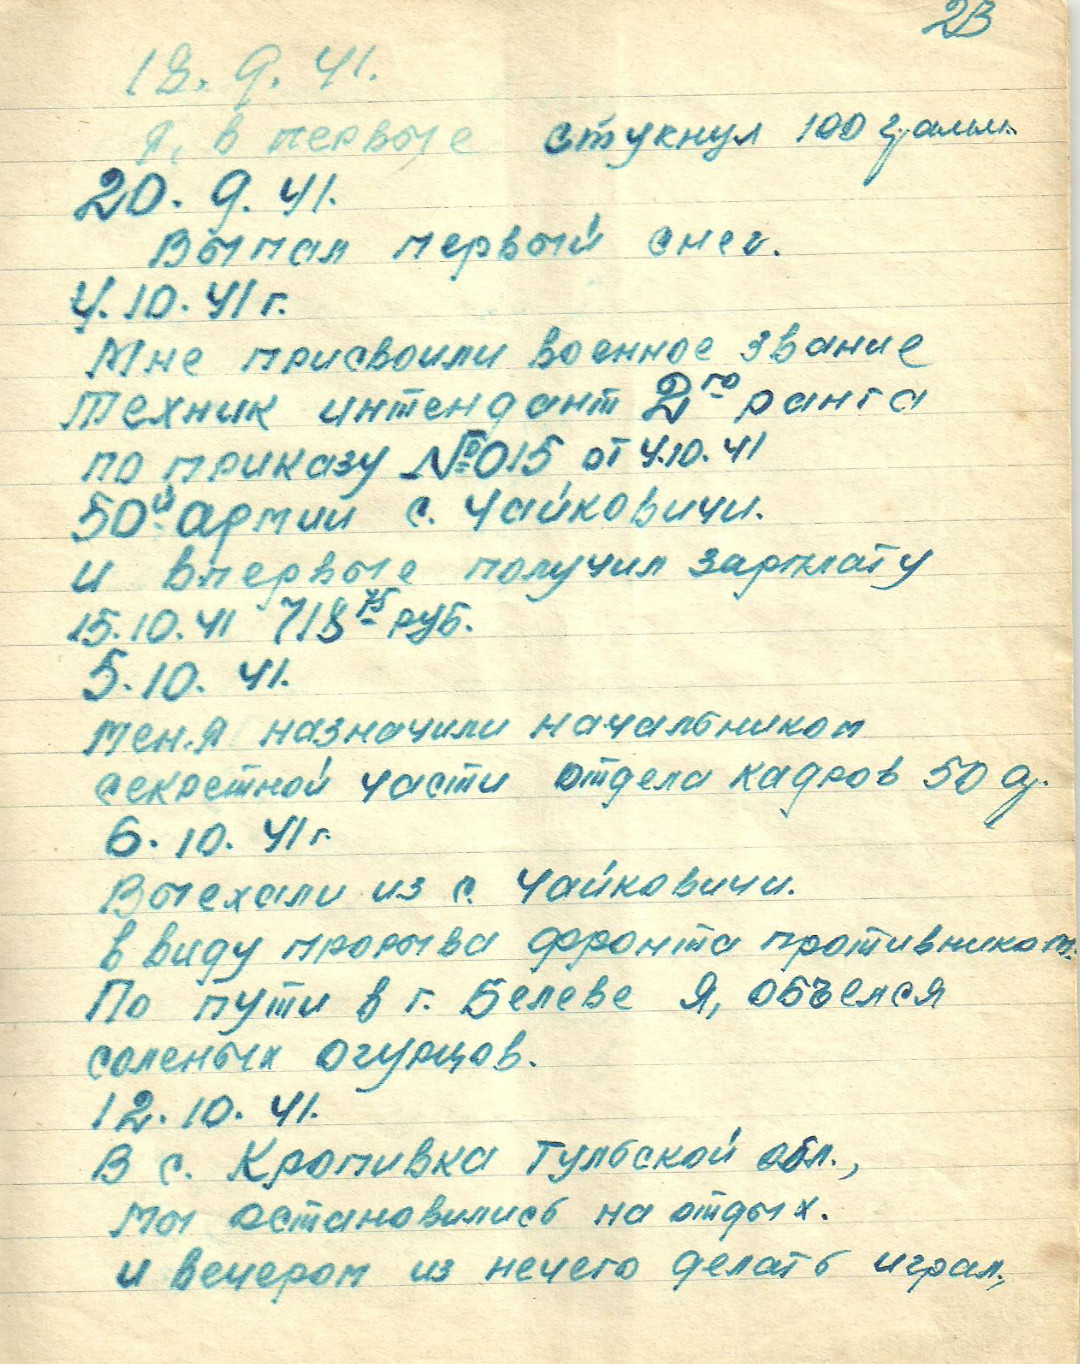 23
18. 9. 41.
Я, в первые стукнул 100 грамм.
20. 9. 41.
Выпал первый снег.
4. 10. 41 г.
Мне присвоили военное звание
Техник интендант 2го ранга
по приказу №015 от 4.10.41
50й армии с. Чайковичи.
и впервые получил зарплату
15.10.41 718 75 руб.
5. 10. 41.
Меня назначили начальником
секретной части отдела кадров 50 а.
6. 10. 41 г.
Выехали из с. Чайковичи.
в виду прорыва фронта противником.
По пути в г. Белеве Я, объелся
соленых огурцов.
12. 10. 41.
В с. Кропивка Тульской обл.,
мы остановились на отдых.
и вечером из нечего делать играл,